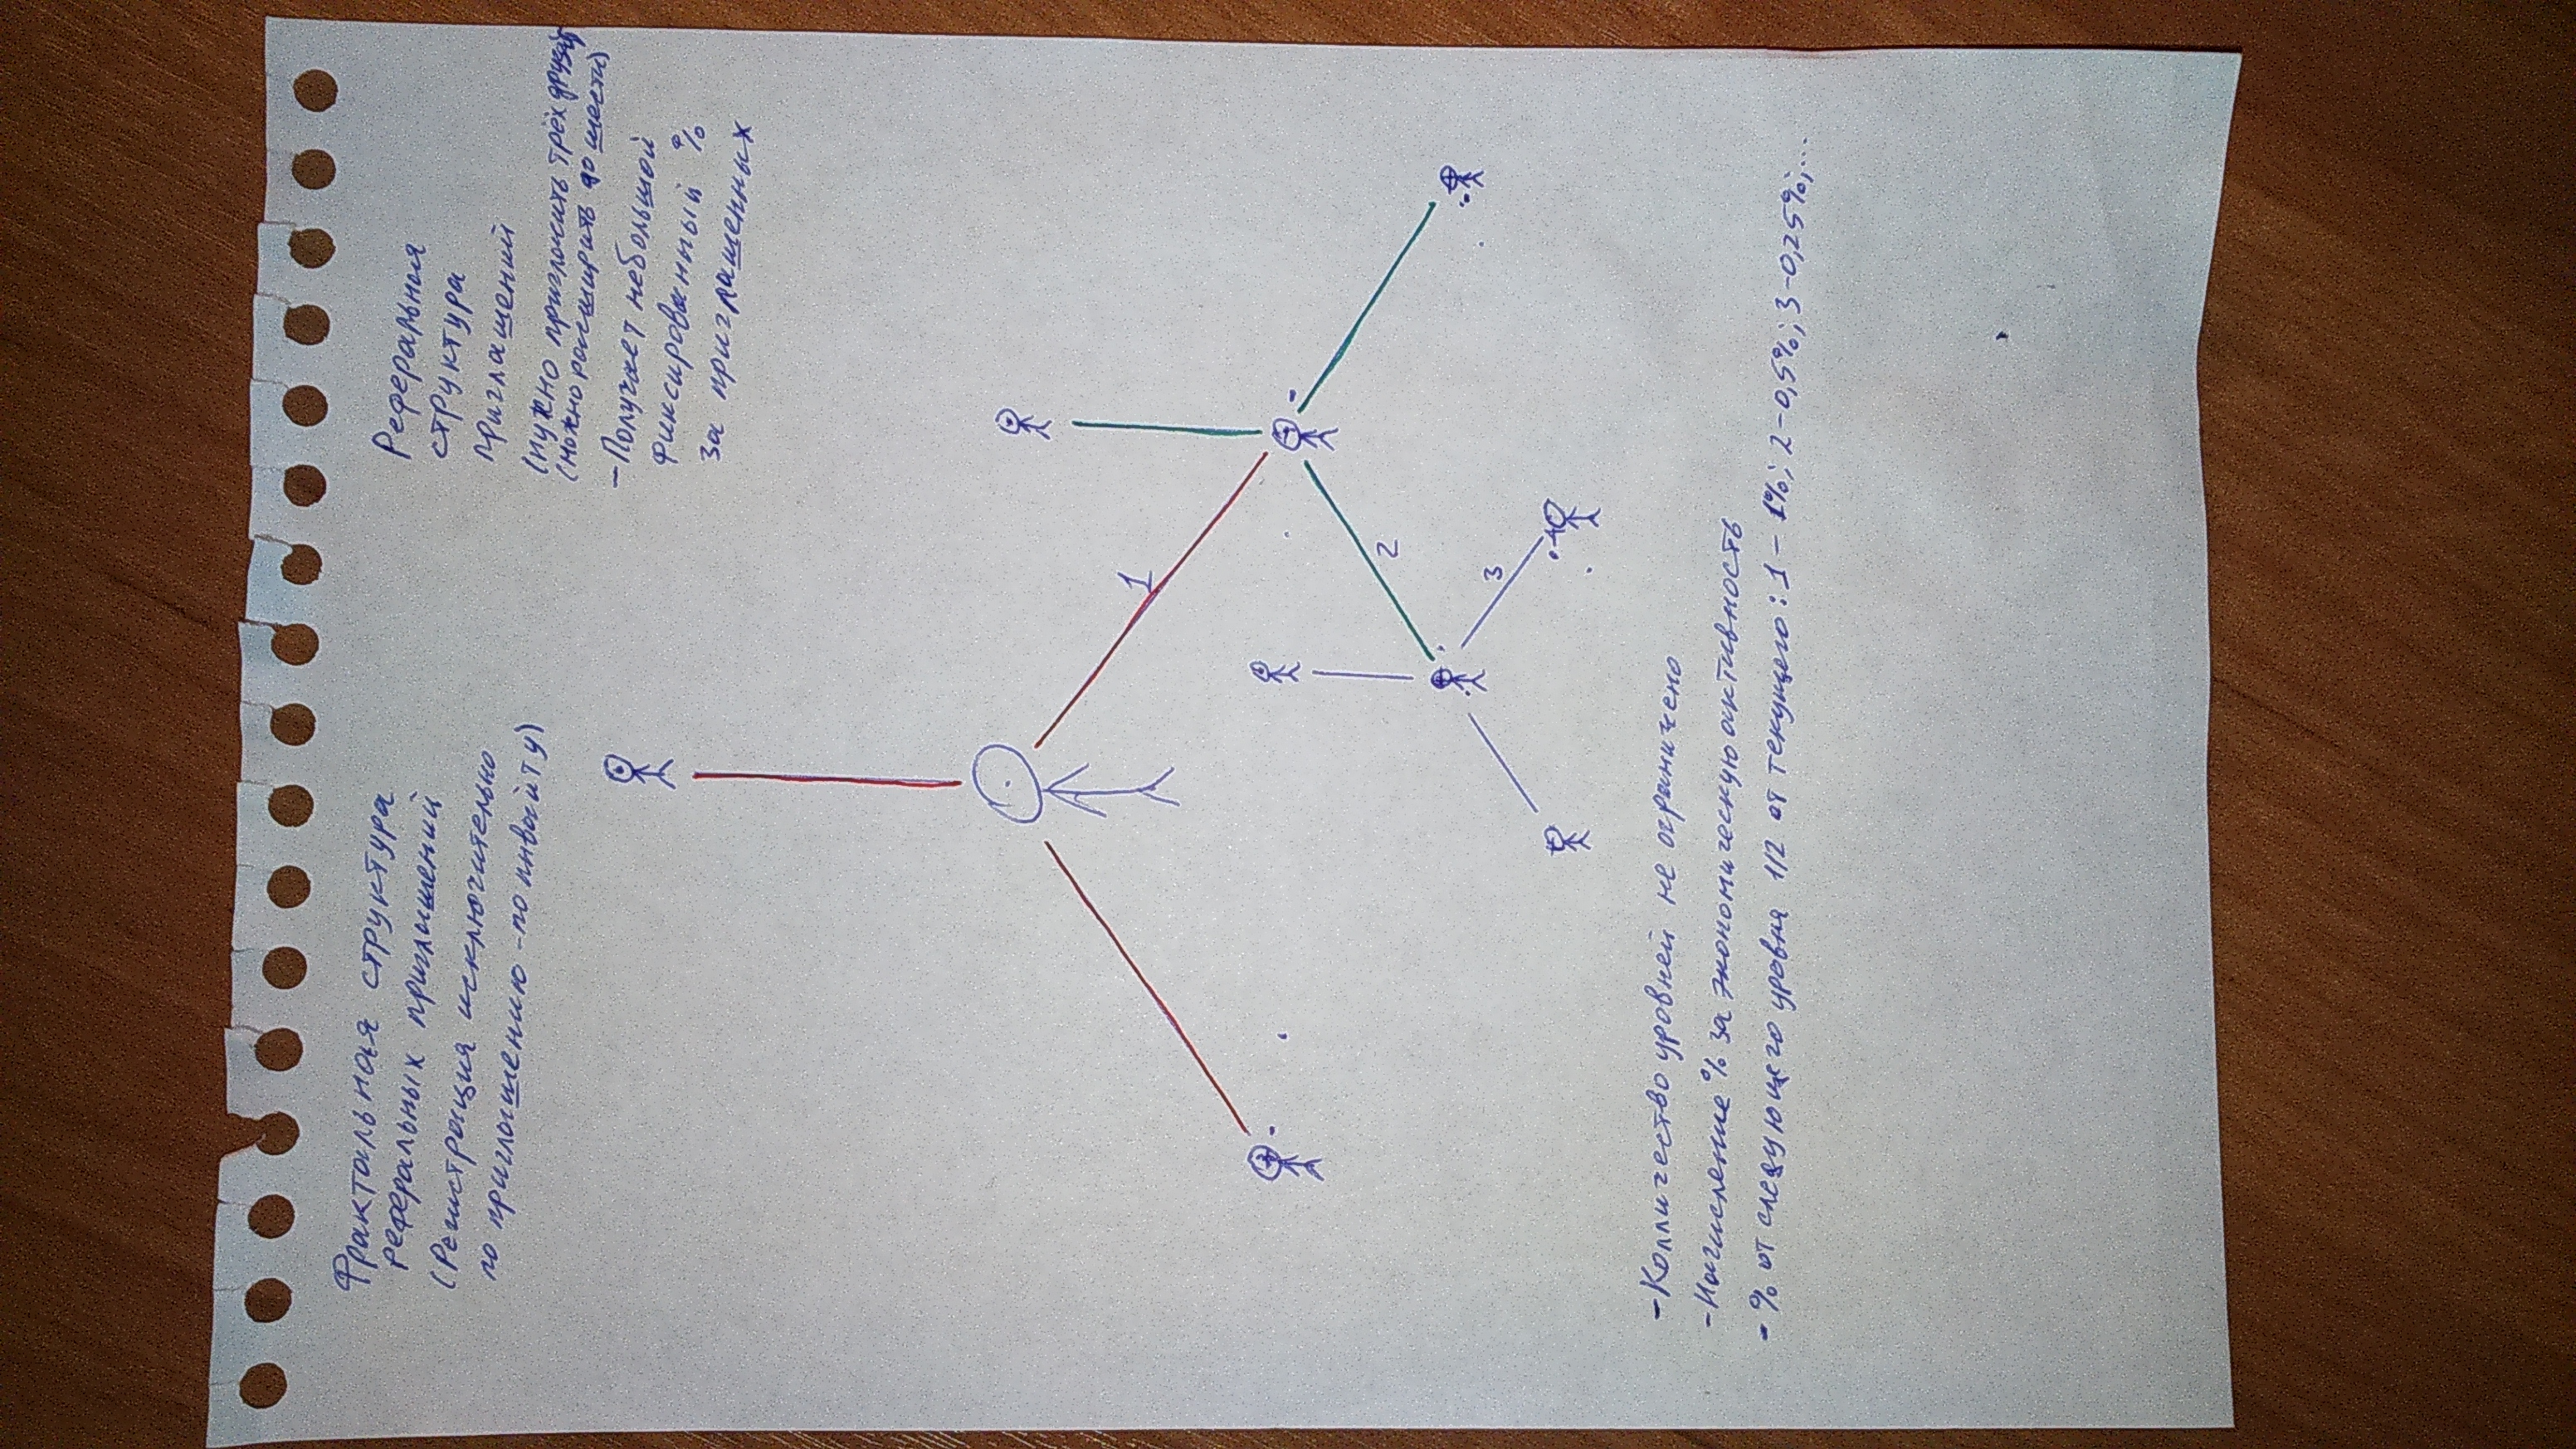 Фрактальная структура
реферальных приглашений
(Регистрация исключительно
по приглашению - по инвайту)
Реферальная
структура
приглашений
(нужно пригласить трёх друзей
(можно расширить до шести)
- Получает небольшой
фиксированный %
за приглашенных
1
2
3
- Колличество уровней не ограничено
- Начисление % за экономическую активность
- % от следующего уровня 1/2 от текущего: 1 - 1%; 2 - 0,5%; 3 - 0,25%;...